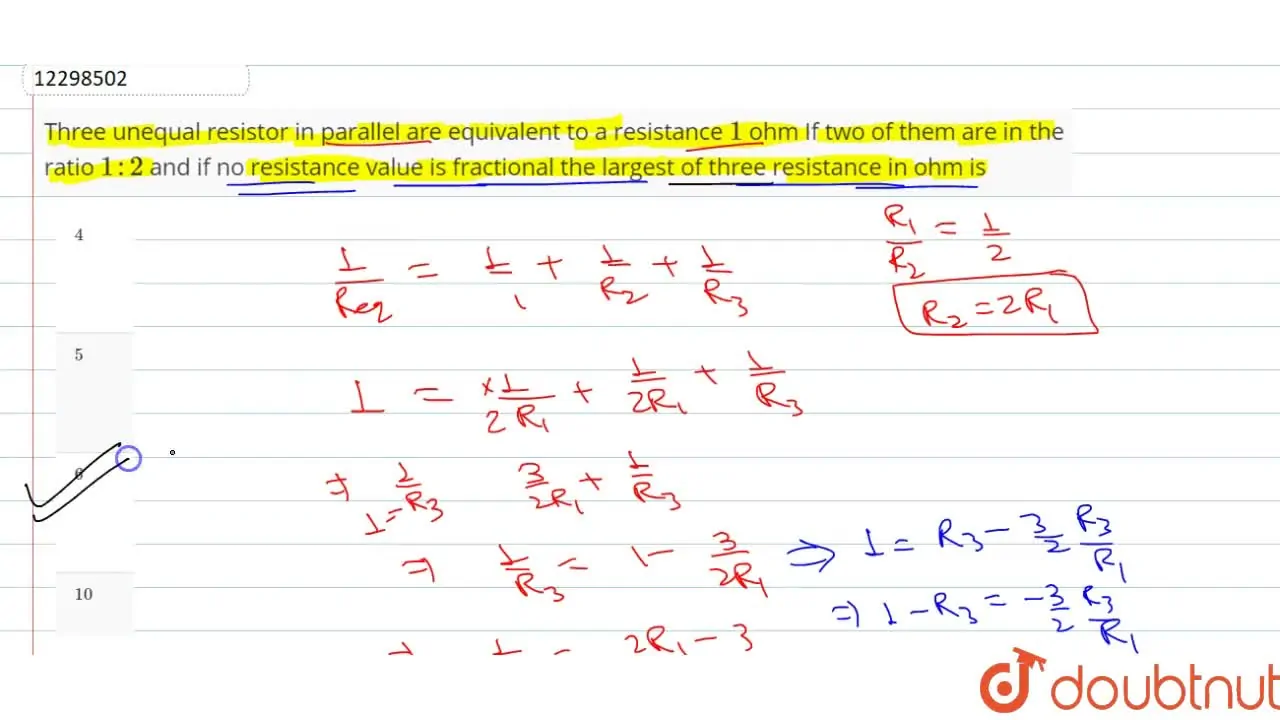 12298502
Three unequal resistor in parallel are equivalent to a resistance 1 ohm If two of them are in the
ratio 1 : 2 and if no resistance value is fractional the largest of three resistance in ohm is
4
1/Req = 1/1 + 1/R2 + 1/R3
R1/R2 = 1/2
R2 = 2R1
5
1 = ×1/2R1 + 1/2R1 + 1/R3
6
⇒ 3/2R1 + 1/R3
⇒ 1/R3 = 1 - 3/2R1
⇒ 1 = R3 - 3/2 R3/R1
10
⇒ 1 - R3 = -3/2 R3/R1
2R1 - 3
doubtnut